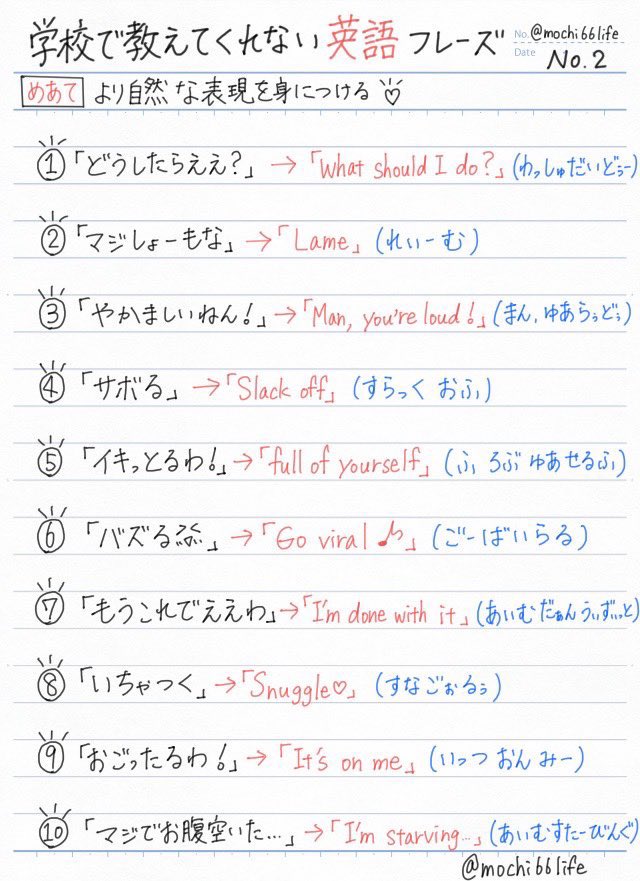 学校で教えてくれない英語フレーズ No. @mochi66life
Date No.2
めあて より自然な表現を身につける♡
① 「どうしたらええ?」→「What should I do?」(わっしゅだいどぅー)
② 「マジしょーもな」→「Lame」(れぃーむ)
③ 「やかましいねん!」→「Man, you're loud!」(まん,ゆあらぅどぅ)
④ 「サボる」→「Slack off」(すらっく おふ)
⑤ 「イキっとるわ!」→「full of yourself」(ふ ろぶ ゆあせるふ)
⑥ 「バズる」→「Go viral♪」(ごーばいらる)
⑦ 「もうこれでええわ」→「I'm done with it」(あいむだぁんうぃずぃっと)
⑧ 「いちゃつく」→「Snuggle♡」(すなごぉるぅ)
⑨ 「おごったるわ!」→「It's on me」(いっつ おん みー)
⑩ 「マジでお腹空いた...」→「I'm starving...」(あいむすたーびんぐ)
@mochi66life